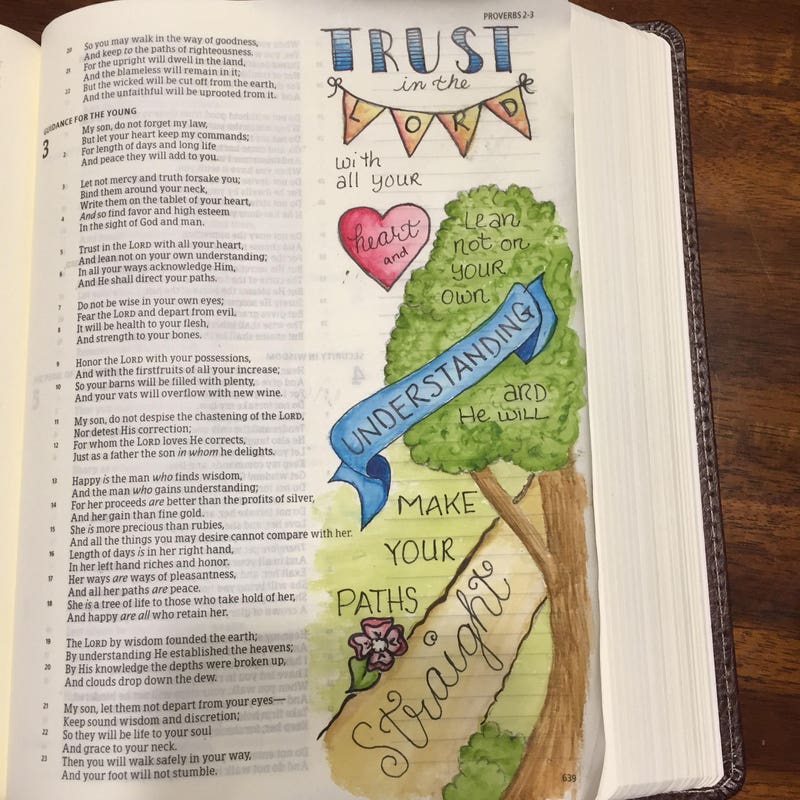 PROVERBS 2-3
20 So you may walk in the way of goodness,
And keep to the paths of righteousness.
21 For the upright will dwell in the land,
And the blameless will remain in it;
22 But the wicked will be cut off from the earth,
And the unfaithful will be uprooted from it.
GUIDANCE FOR THE YOUNG
3 My son, do not forget my law,
But let your heart keep my commands;
2 For length of days and long life
And peace they will add to you.
3 Let not mercy and truth forsake you;
Bind them around your neck,
Write them on the tablet of your heart,
4 And so find favor and high esteem
In the sight of God and man.
5 Trust in the LORD with all your heart,
And lean not on your own understanding;
6 In all your ways acknowledge Him,
And He shall direct your paths.
7 Do not be wise in your own eyes;
Fear the LORD and depart from evil.
8 It will be health to your flesh,
And strength to your bones.
9 Honor the LORD with your possessions,
And with the firstfruits of all your increase;
10 So your barns will be filled with plenty,
And your vats will overflow with new wine.
11 My son, do not despise the chastening of the LORD,
Nor detest His correction;
12 For whom the LORD loves He corrects,
Just as a father the son in whom he delights.
13 Happy is the man who finds wisdom,
And the man who gains understanding;
14 For her proceeds are better than the profits of silver,
And her gain than fine gold.
15 She is more precious than rubies,
And all the things you may desire cannot compare with her.
16 Length of days is in her right hand,
In her left hand riches and honor.
17 Her ways are ways of pleasantness,
And all her paths are peace.
18 She is a tree of life to those who take hold of her,
And happy are all who retain her.
19 The LORD by wisdom founded the earth;
By understanding He established the heavens;
20 By His knowledge the depths were broken up,
And clouds drop down the dew.
21 My son, let them not depart from your eyes—
Keep sound wisdom and discretion;
22 So they will be life to your soul
And grace to your neck.
23 Then you will walk safely in your way,
And your foot will not stumble.
TRUST
in the
LORD
with
all your
heart
and
Lean
not on
your
own
UNDERSTANDING
and
He will
MAKE
YOUR
PATHS
Straight
639